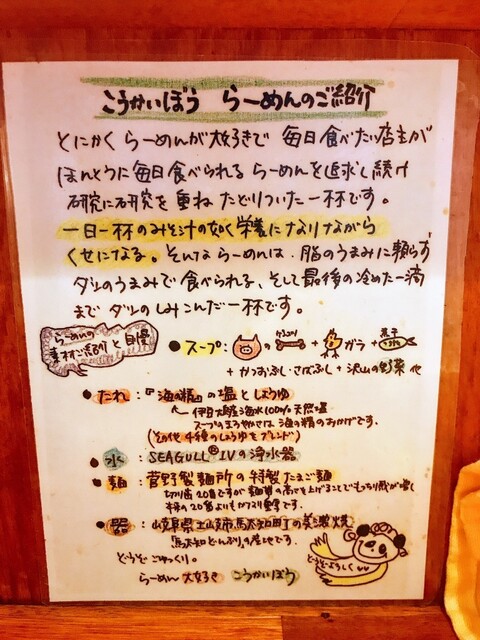 こうかいぼう らーめんのご紹介
とにかく らーめんが大好きで 毎日食べたい店主が
ほんとうに毎日食べられる らーめんを追求し続け
研究に研究を重ね たどりついた一杯です。
一日一杯のみそ汁の如く栄養になりながら
くせになる。そんならーめんは、脂のうまみに頼らず
ダシのうまみで食べられる、そして最後の冷めた一滴
まで ダシのしみこんだ一杯です。
らーめんの
素材ご紹介と自慢
・スープ: の ゲンコツ + ガラ + 煮干
+ かつおぶし・さばぶし + 沢山の野菜 他
・たれ:『海の精』の塩としょうゆ
伊豆大島産海水100%天然塩
スープのまろやかさは 海の精のおかげです。
(その他 4種のしょうゆをブレンド)
・水: SEAGULL®IVの浄水器
・麺: 菅野製麺所の特製たまご麺
切刃は20番ですが 麺帯の高さを上げることでもっちり感が増し
・器: 岐阜県土岐市駄知町の美濃焼
「駄知どんぶり」の産地です。
どうぞごゆっくり。
らーめん 大好き こうかいぼう
どうぞよろしく